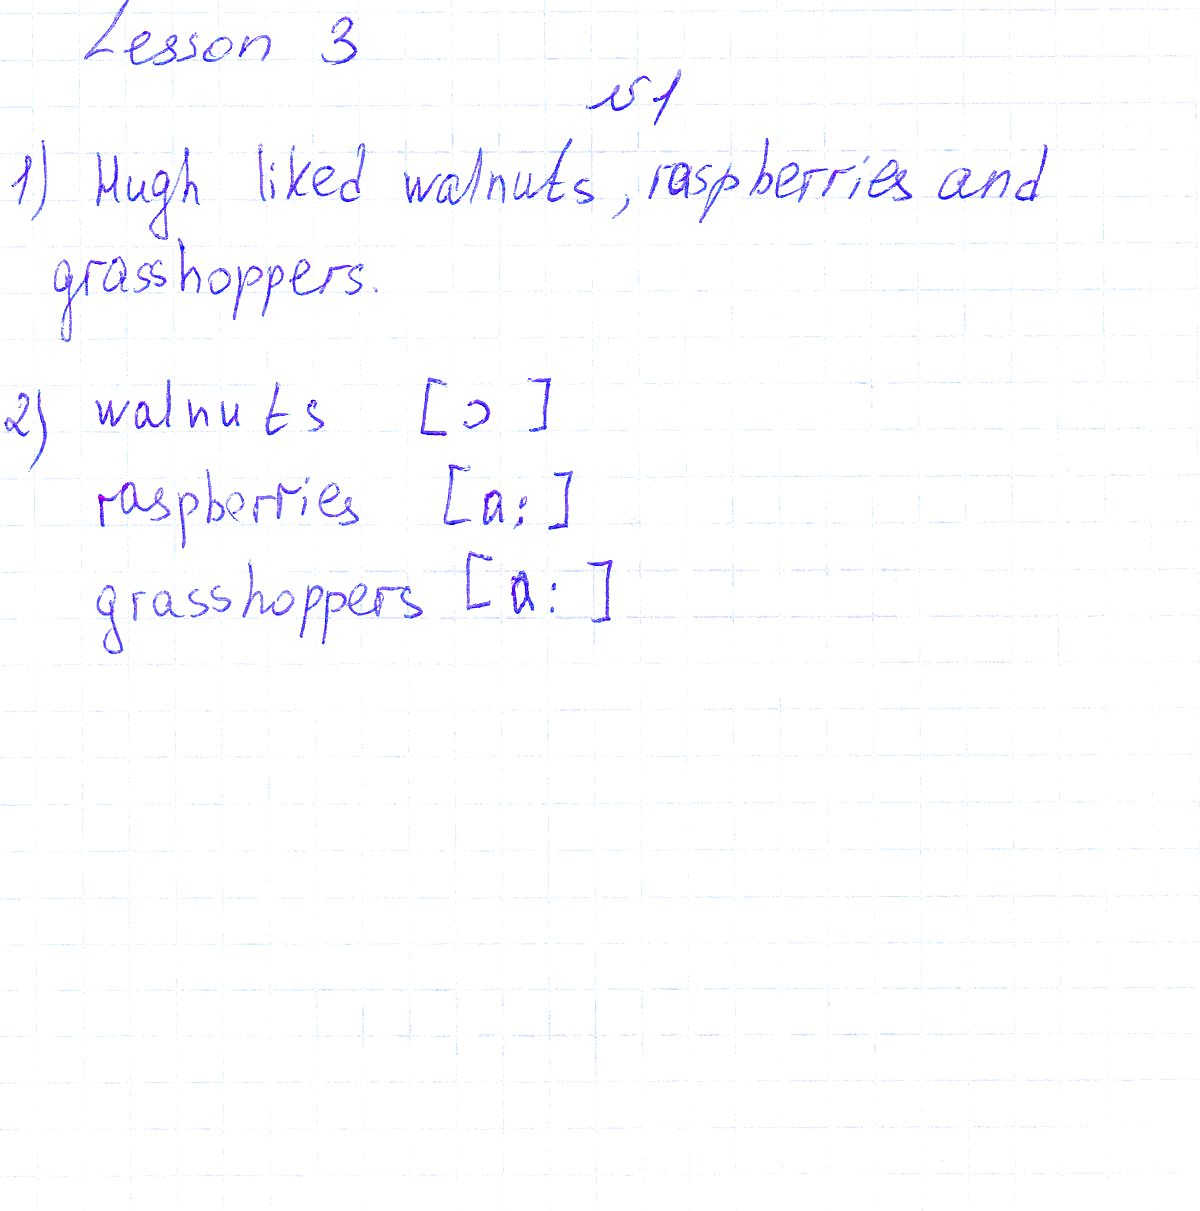 Lesson 3
№1
1) Hugh liked walnuts, raspberries and
grasshoppers.
2) walnuts [ɔ]
raspberries [a:]
grasshoppers [a:]